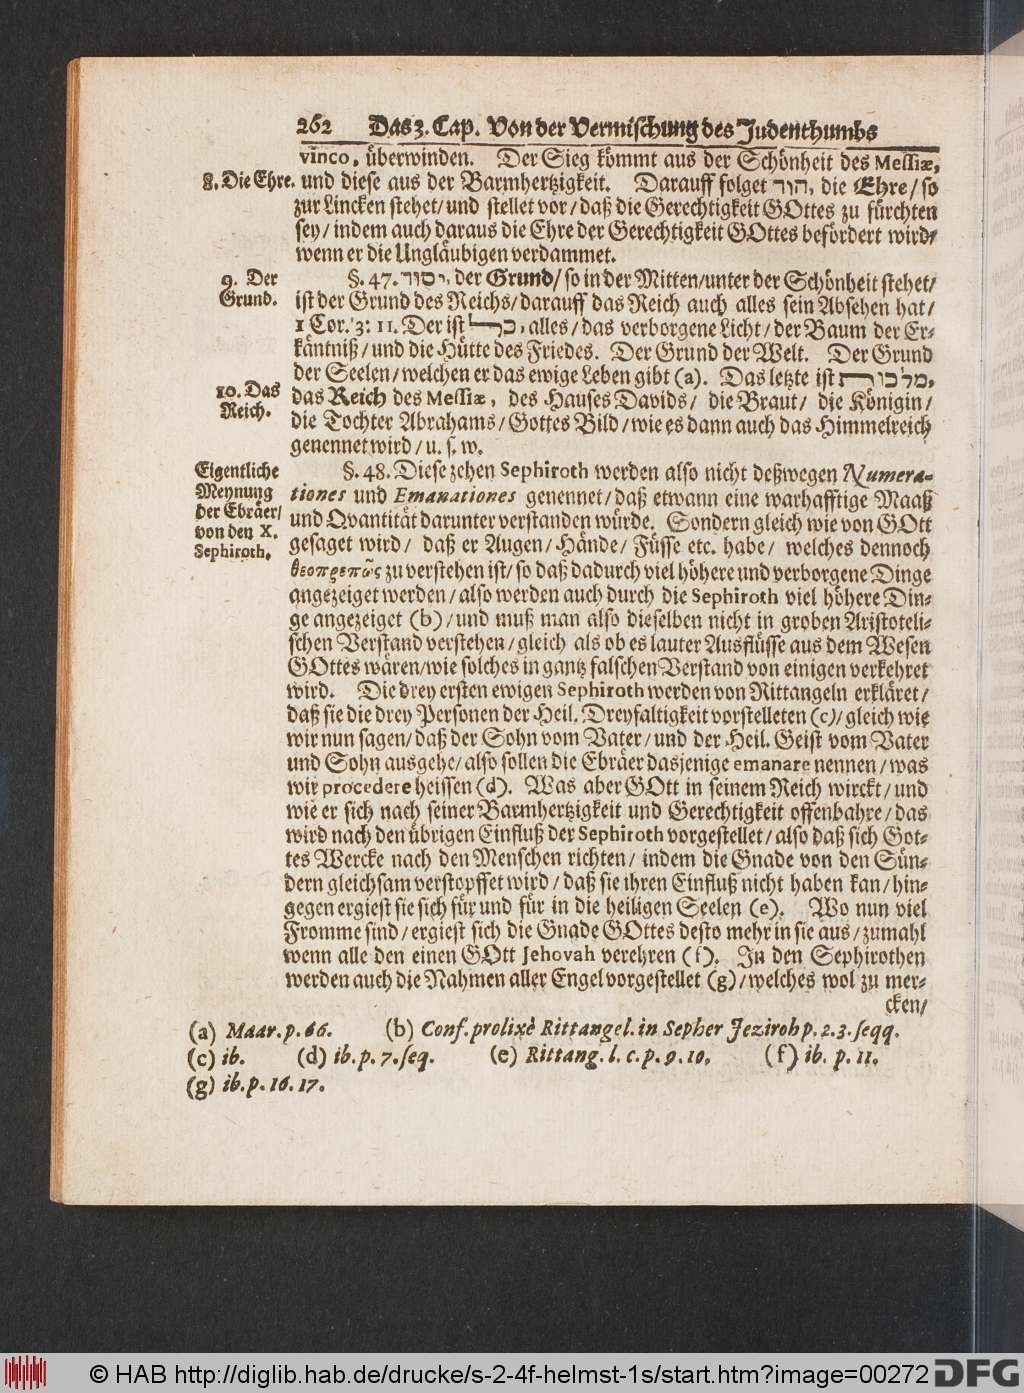 262 Das 3. Cap. Von der Vermischung des Judenthumbs
vinco, überwinden. Der Sieg kömmt aus der Schönheit des Messiæ,
8. Die Ehre. und diese aus der Barmhertzigkeit. Darauff folget הוד, die Ehre/ so
zur Lincken stehet/ und stellet vor/ daß die Gerechtigkeit GOttes zu fürchten
sey/ indem auch daraus die Ehre der Gerechtigkeit GOttes befördert wird/
wenn er die Ungläubigen verdammet.
9. Der
Grund.
§. 47. יסוד, der Grund/ so in der Mitten/ unter der Schönheit stehet/
ist der Grund des Reichs/ darauff das Reich auch alles sein Absehen hat/
1 Cor. 3: 11. Der ist כל, alles/ das verborgene Licht/ der Baum der Er-
käntniß/ und die Hütte des Friedes. Der Grund der Welt. Der Grund
der Seelen/ welchen er das ewige Leben gibt (a). Das letzte ist מלכות,
10. Das
Reich.
das Reich des Messiæ, des Hauses Davids/ die Braut/ die Königin/
die Tochter Abrahams/ Gottes Bild/ wie es dann auch das Himmelreich
genennet wird/ u. s. w.
Eigentliche
Meynung
der Ebräer/
von den X.
Sephiroth.
§. 48. Diese zehen Sephiroth werden also nicht deßwegen Numera-
tiones und Emanationes genennet/ daß etwann eine warhafftige Maaß
und Qvantität darunter verstanden würde. Sondern gleich wie von GOtt
gesaget wird/ daß er Augen/ Hände/ Füsse etc. habe/ welches dennoch
θεοπρεπῶς zu verstehen ist/ so daß dadurch viel höhere und verborgene Dinge
angezeiget werden/ also werden auch durch die Sephiroth viel höhere Din-
ge angezeiget (b)/ und muß man also dieselben nicht in groben Aristoteli-
schen Verstand verstehen/ gleich als ob es lauter Ausflüsse aus dem Wesen
GOttes wären/ wie solches in gantz falschen Verstand von einigen verkehret
wird. Die drey ersten ewigen Sephiroth werden von Rittangeln erkläret/
daß sie die drey Personen der Heil. Dreyfaltigkeit vorstelleten (c)/ gleich wie
wir nun sagen/ daß der Sohn vom Vater/ und der Heil. Geist vom Vater
und Sohn ausgehe/ also sollen die Ebräer dasjenige emanare nennen/ was
wir procedere heissen (d). Was aber GOtt in seinem Reich wirckt/ und
wie er sich nach seiner Barmhertzigkeit und Gerechtigkeit offenbahre/ das
wird nach den übrigen Einfluß der Sephiroth vorgestellet/ also daß sich Got-
tes Wercke nach den Menschen richten/ indem die Gnade von den Sün-
dern gleichsam verstopffet wird/ daß sie ihren Einfluß nicht haben kan/ hin-
gegen ergiest sie sich für und für in die heiligen Seelen (e). Wo nun viel
Fromme sind/ ergiest sich die Gnade GOttes desto mehr in sie aus/ zumahl
wenn alle den einen GOtt Jehovah verehren (f). In den Sephirothen
werden auch die Nahmen aller Engel vorgestellet (g)/ welches wol zu mer-
cken/
(a) Maar. p. 66. (b) Conf. prolixè Rittangel. in Sepher Jezirohp. 2. 3. seqq.
(c) ib. (d) ib. p. 7. seq. (e) Rittang. l. c. p. 9. 10. (f) ib. p. 11.
(g) ib. p. 16. 17.
© HAB http://diglib.hab.de/drucke/s-2-4f-helmst-1s/start.htm?image=00272 DFG